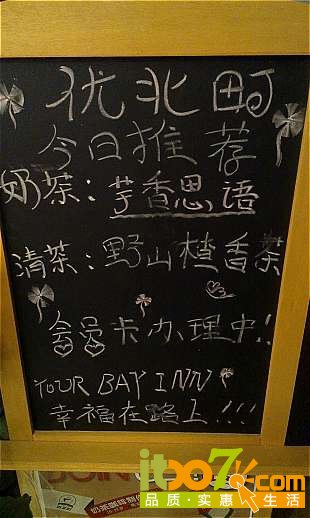 优北町
今日推荐
奶茶：芋香思语
清茶：野山楂香茶
会员卡办理中！
YOUR BAY INN
幸福在路上！！！
itoo7k.com
品质·实惠 生活